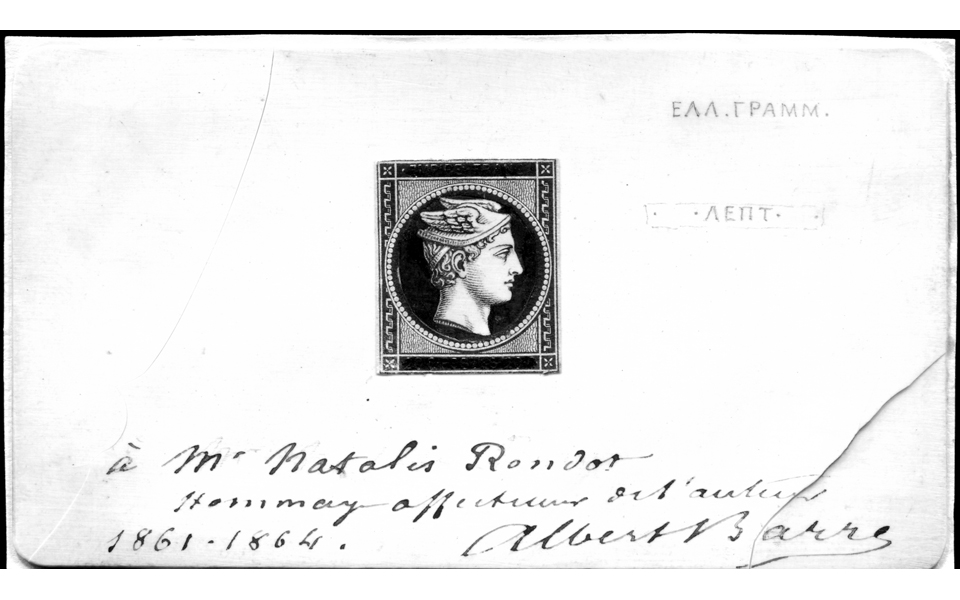 ΕΛΛ.ΓΡΑΜΜ.
· ·ΛΕΠΤ· ·
à Mr Natalis Rondot
Hommage affectueux de l'auteur
1861-1864.
Albert Barre